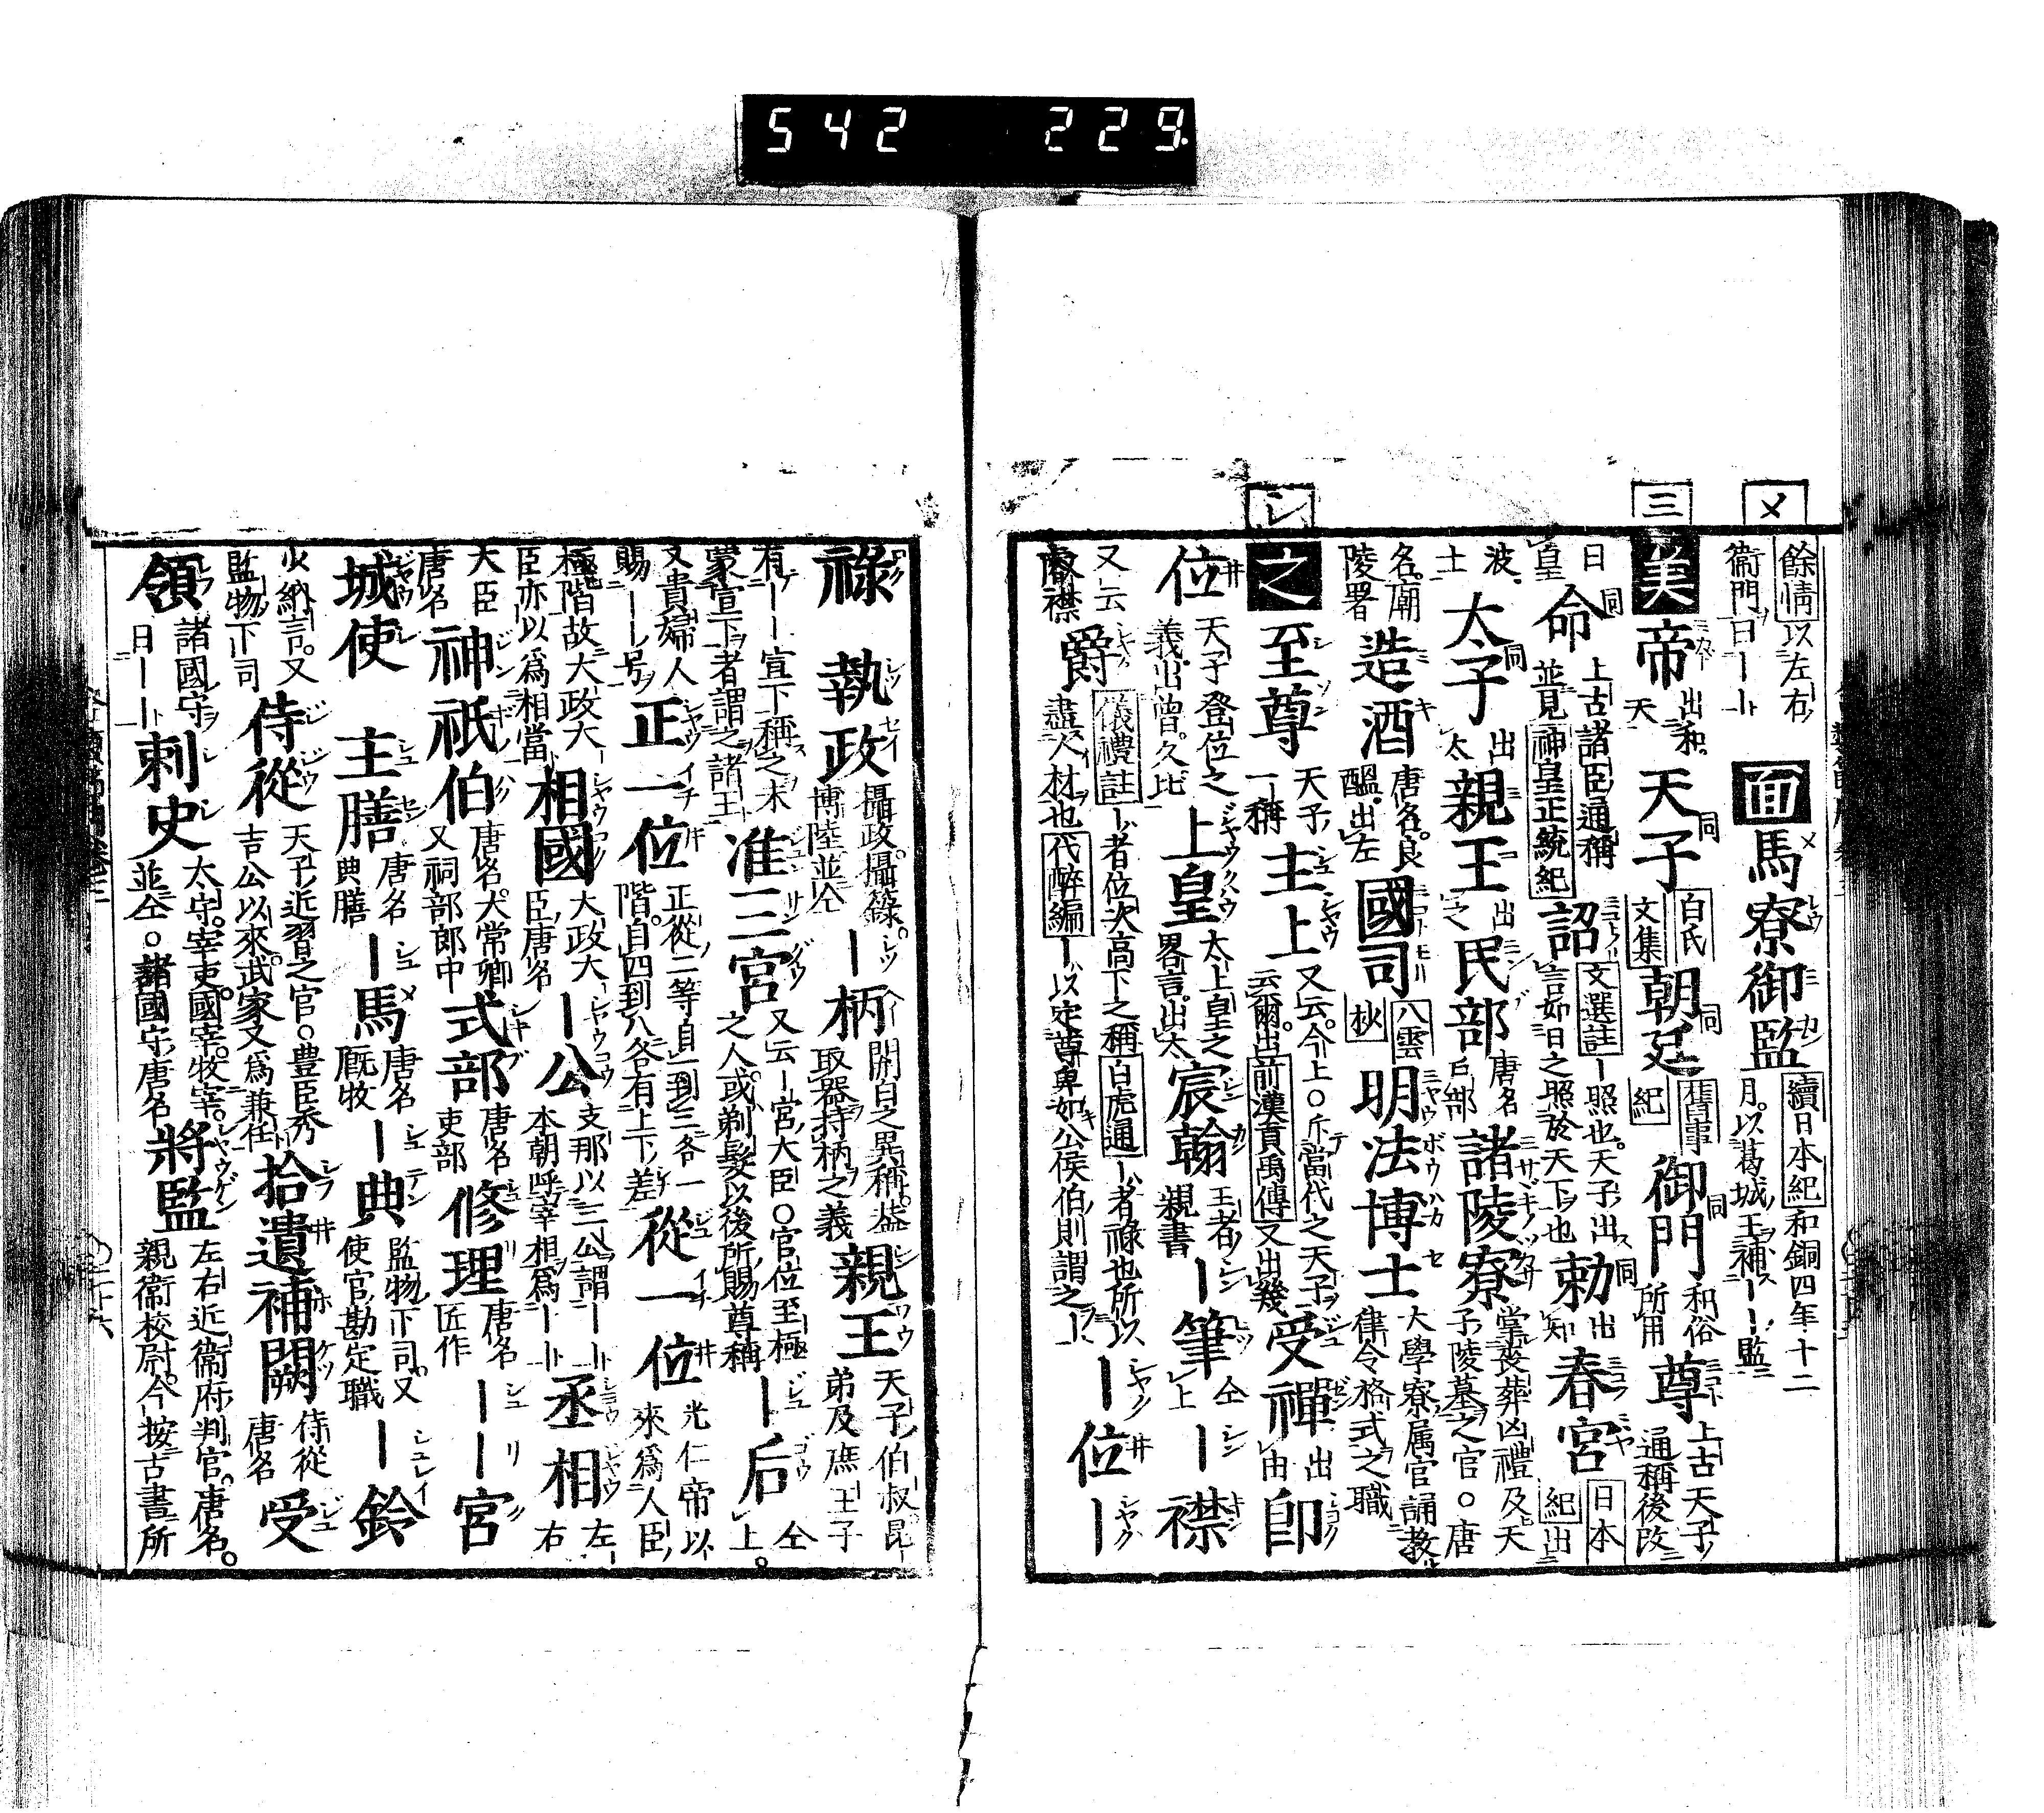 542 229
メ
三
シ
餘情以左右衞門曰――ト 面 馬寮御監 續日本紀和銅四年十二月以葛城王補――監
美 帝 出和天 天子 同 白氏文集 朝廷 同 舊事紀 御門 同 和俗所用 尊 上古天子通稱後改
曰皇 命 同 上古諸臣通稱並見神皇正統紀 詔 文選註―照也天子出言如日之照於天下也 勅 同 出知 春宮 日本紀出
波士 太子 同 出太 親王 出之 民部 唐名戸部 諸陵寮 掌喪葬凶禮及天子陵墓之官○唐
名廟陵署 造酒 唐名良醞出左 國司 八雲 明法博士 大學寮属官誦教律令格式之職
之 至尊 天子一稱 主上 又云今上○斥當代之天子云爾出前漢貢禹傳又出幾 受禪 出由 卽
位 天子登位之義出曾久比 上皇 太上皇之畧言出太 宸翰 王者親書 ―筆 仝上 ―襟
又云睿襟 爵 儀禮註―者位次高下之稱白虎通―者祿也所以盡人材也代醉編―以定尊卑如公侯伯則謂之― ―位―
祿 執政 攝政攝籙博陸並仝 ―柄 關白之異稱蓋取器持柄之義 親王 天子伯叔昆弟及庶王子
有――宣下稱之未蒙宣下者謂之諸王 准三宮 又云―宮大臣○官位至極之人或剃髮以後所賜尊稱 ―后 仝上
又貴婦人賜――号 正一位 正從二等自一到三各一階自四到八各有上下差 從一位 光仁帝以來爲人臣
極階故大政大臣亦以爲相當 相國 大政大臣唐名 ―公 支那以三公謂――本朝呼宰相爲―― 丞相 左右
大臣唐名 神祇伯 唐名大常卿又祠部郎中 式部 唐名吏部 修理 唐名匠作 ――宮
城使 主膳 唐名典膳 ―馬 唐名厩牧 ―典 監物下司又使官勘定職 ―鈴
少納言又監物下司 侍從 天子近習之官○豊臣秀吉公以來武家又爲兼任 拾遺補闕 侍從唐名 受
領 諸國守曰―― 刺史 太守宰吏國宰牧宰並仝○諸國守唐名 將監 左右近衞府判官唐名親衞校尉今按古書所